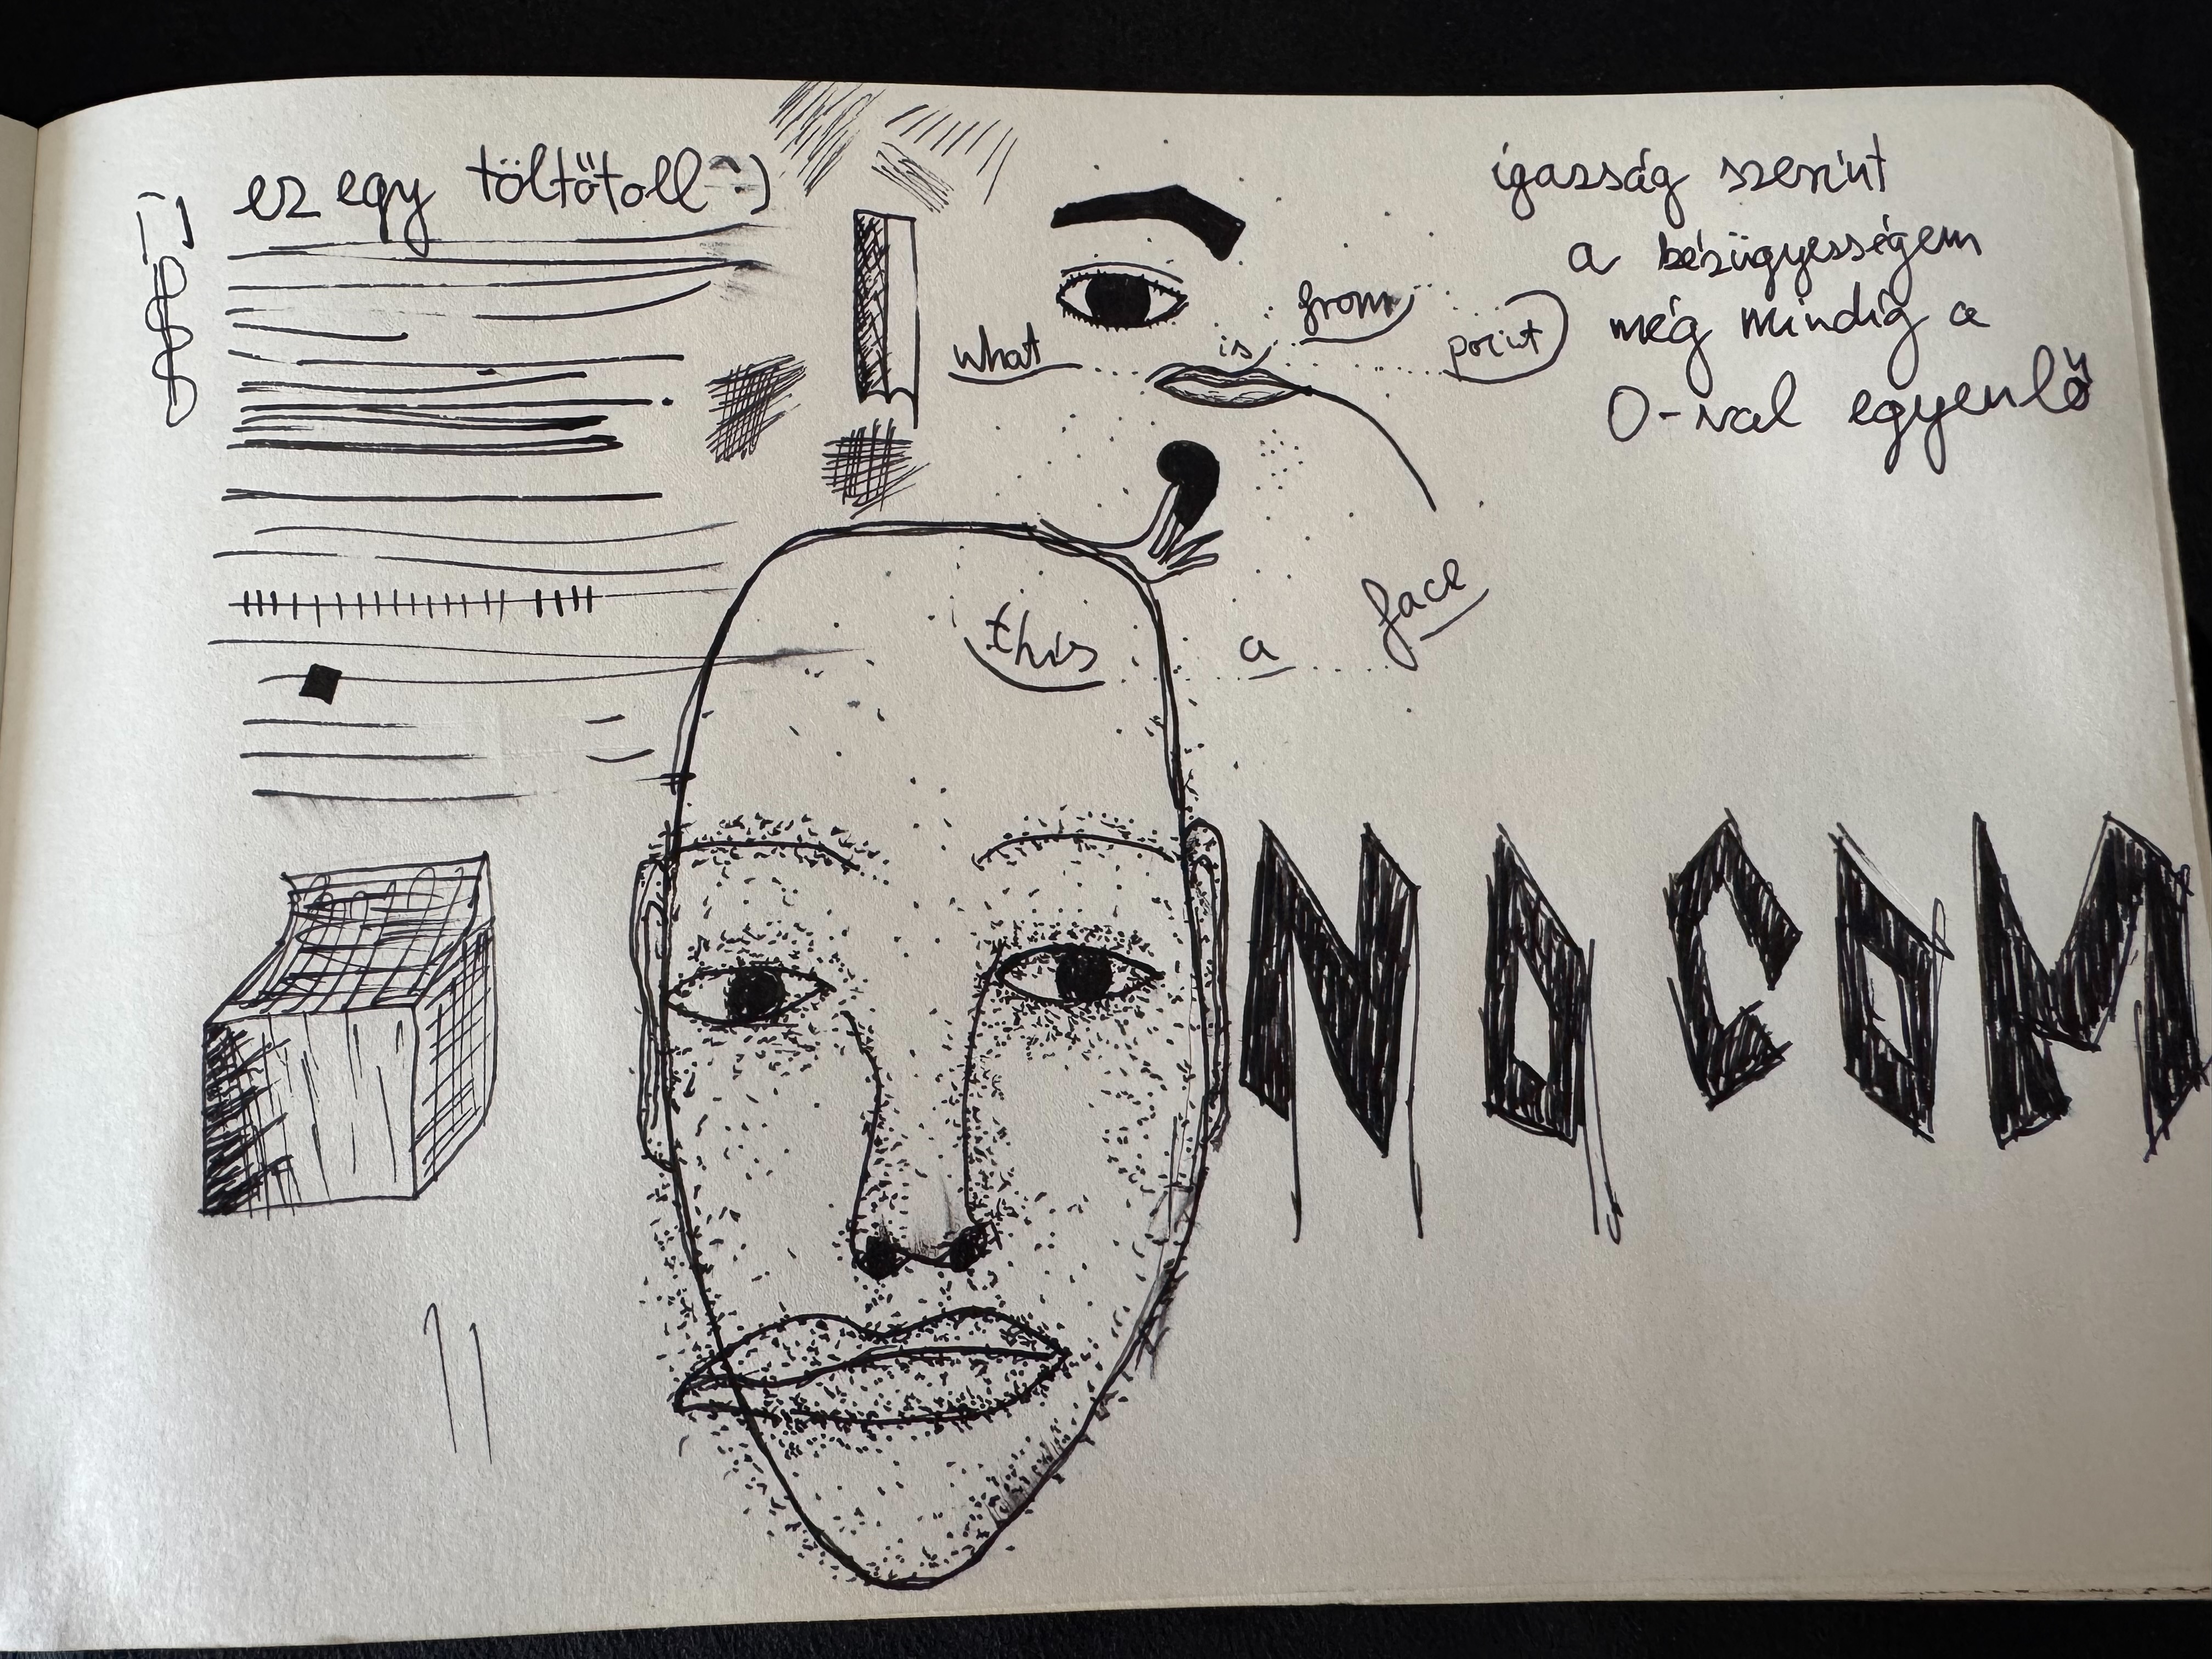 ez egy töltőtoll :)
igazság szerint
a kézügyességem
még mindig a
0-val egyenlő
what is from point
this a face
NOCOM